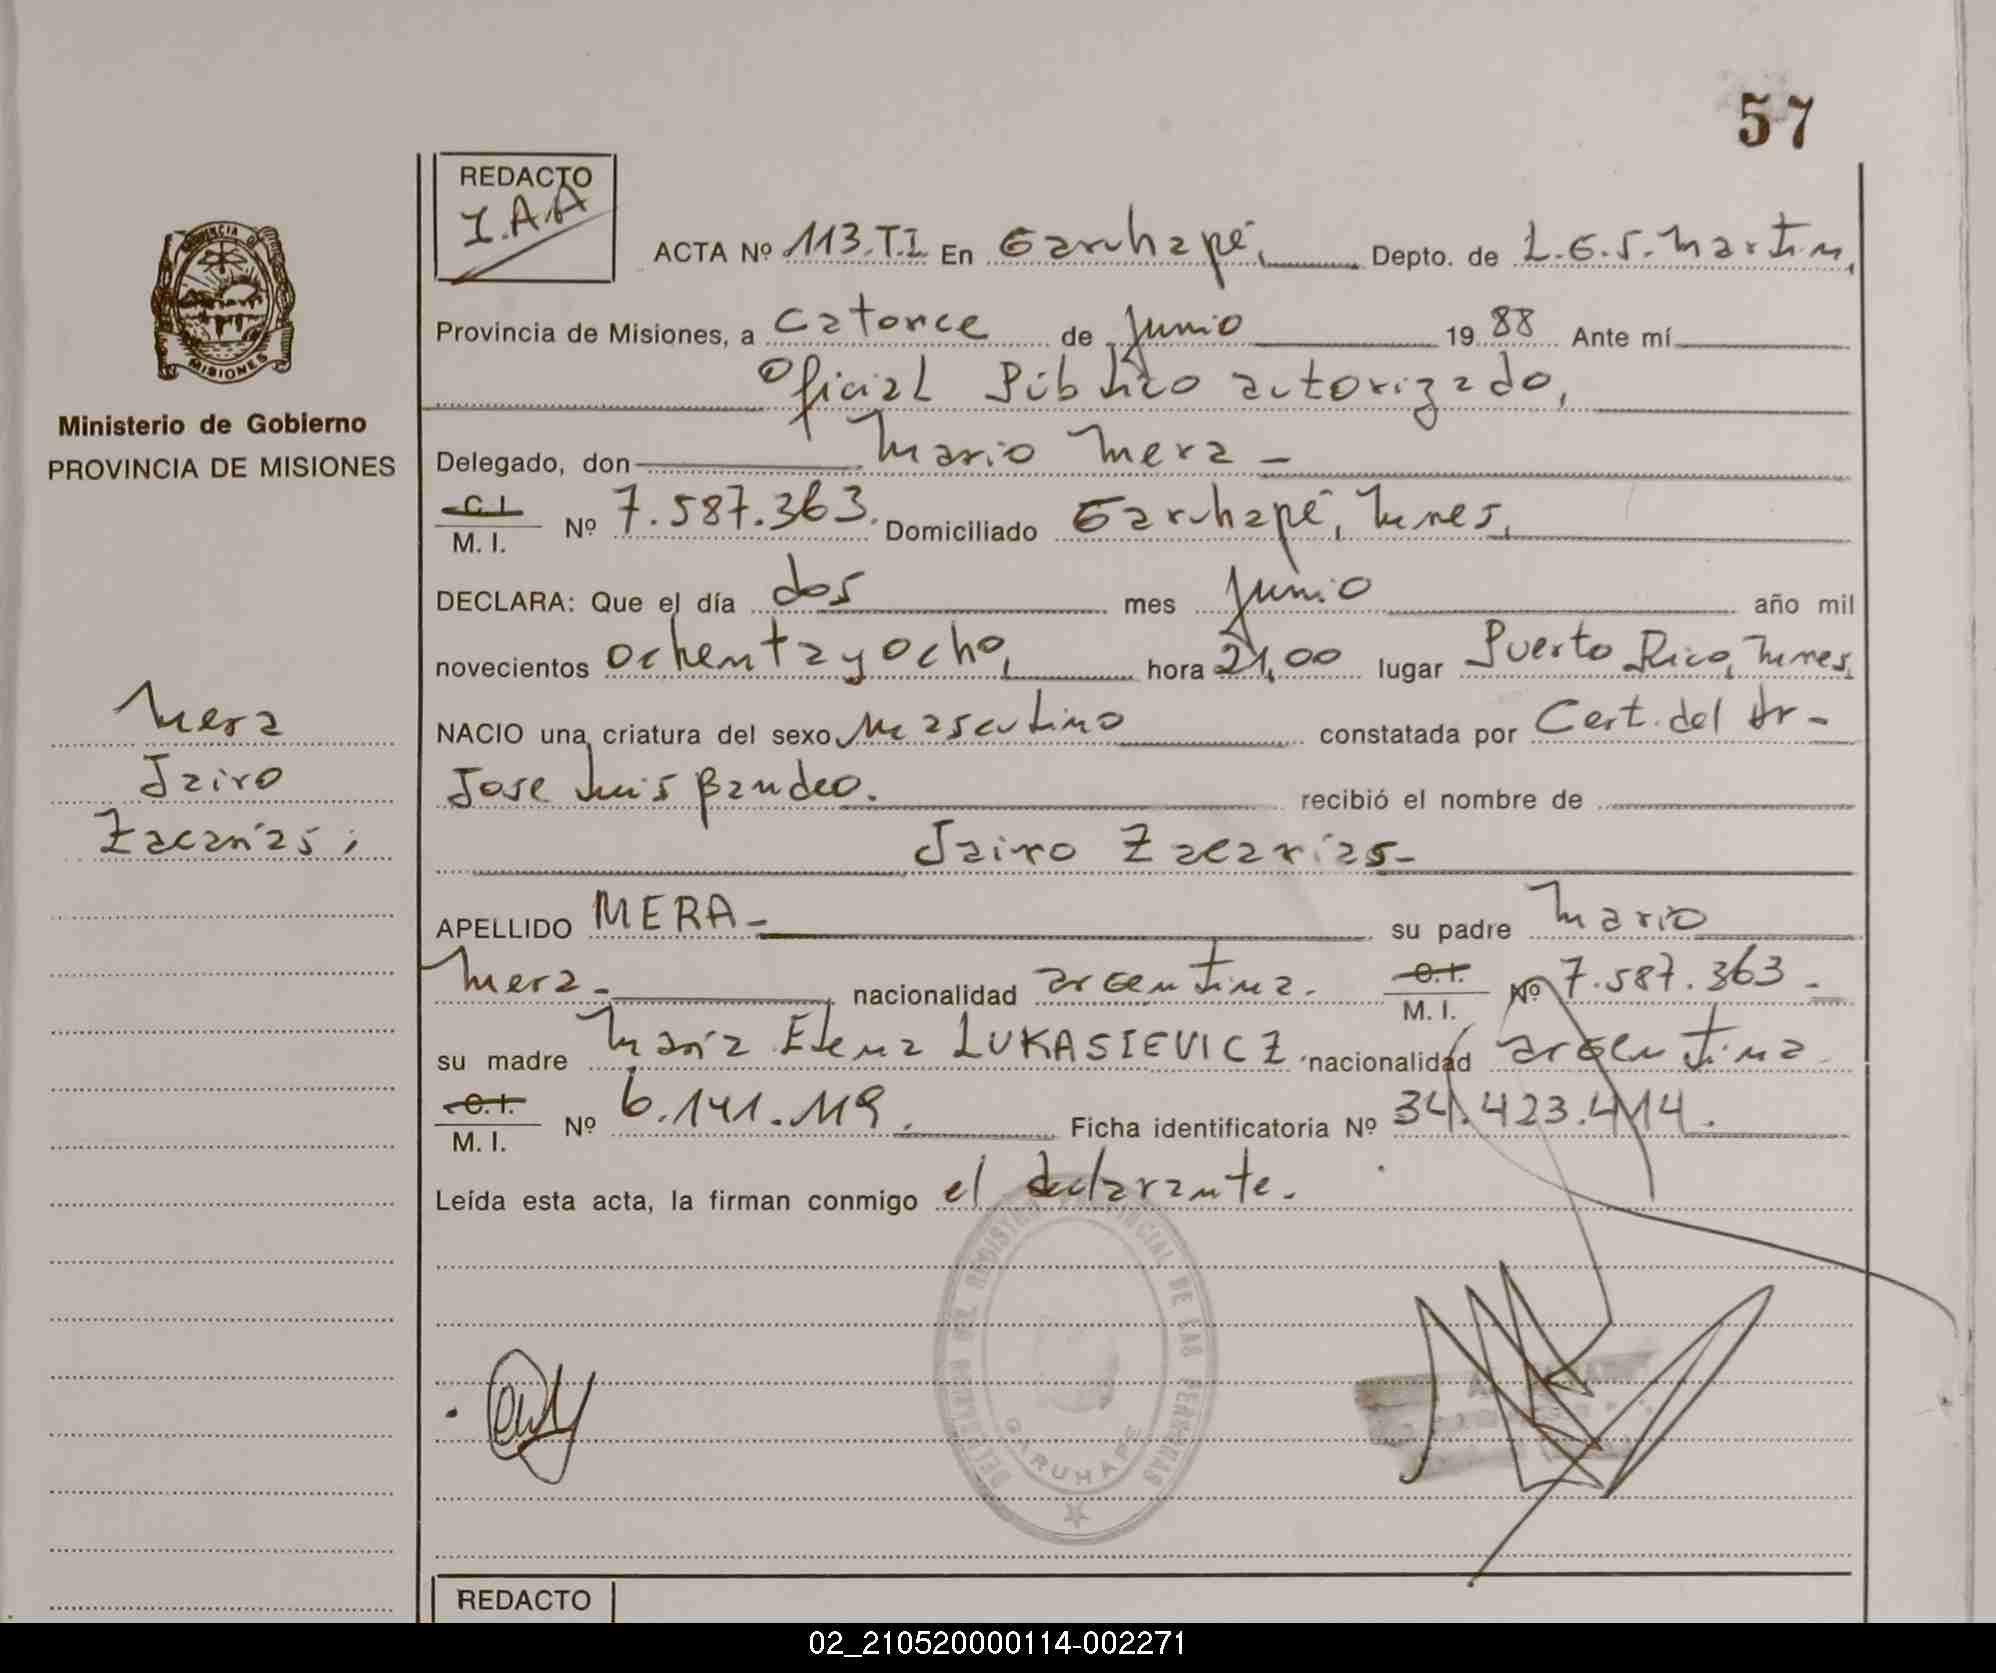 57
REDACTO
I.A.A
ACTA Nº 113.T.I En Garuhapé, Depto. de L.G.S. Martin,
Provincia de Misiones, a catorce de Junio 1988 Ante mí
Oficial Público autorizado,
Delegado, don Mario Mera -
C.I.
M. I. Nº 7.587.363. Domiciliado Garuhapé, Mnes,
DECLARA: Que el día dos mes Junio año mil
novecientos ochenta y ocho, hora 21,00 lugar Puerto Rico, Mnes,
NACIO una criatura del sexo Masculino constatada por Cert. del Dr-
Jose Luis Bandeo. recibió el nombre de
Jairo Zacarías-
APELLIDO MERA- su padre Mario
Mera- nacionalidad argentina. C.I. M. I. Nº 7.587.363-
su madre María Elena LUKASIEVICZ nacionalidad argentina
C.I.
M. I. Nº 6.141.119. Ficha identificatoria Nº 34.423.414.
Leída esta acta, la firman conmigo el declarante.
PROVINCIA DE
MISIONES
Ministerio de Gobierno
PROVINCIA DE MISIONES
Mera
Jairo
Zacarías;
DEL REGISTRO PROVINCIAL DE LAS PERSONAS
GARUHAPE
REDACTO
02_210520000114-002271